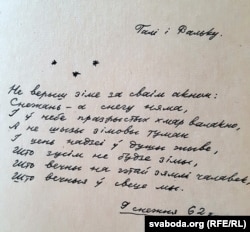 Галі і Данчыку.
* * *
Не верыш зіме за сваім акном:
Снежань – а снегу няма,
І ў небе празрыстых хмар валакно,
А не шызы зімовы туман
І цень надзеі ў душы жыве,
Што зусім не будзе зімы,
Што вечны на гэтай зямлі чалавек,
Што вечныя ў свеце мы.
9 снежня 62 г.
svaboda.org (RFE/RL)